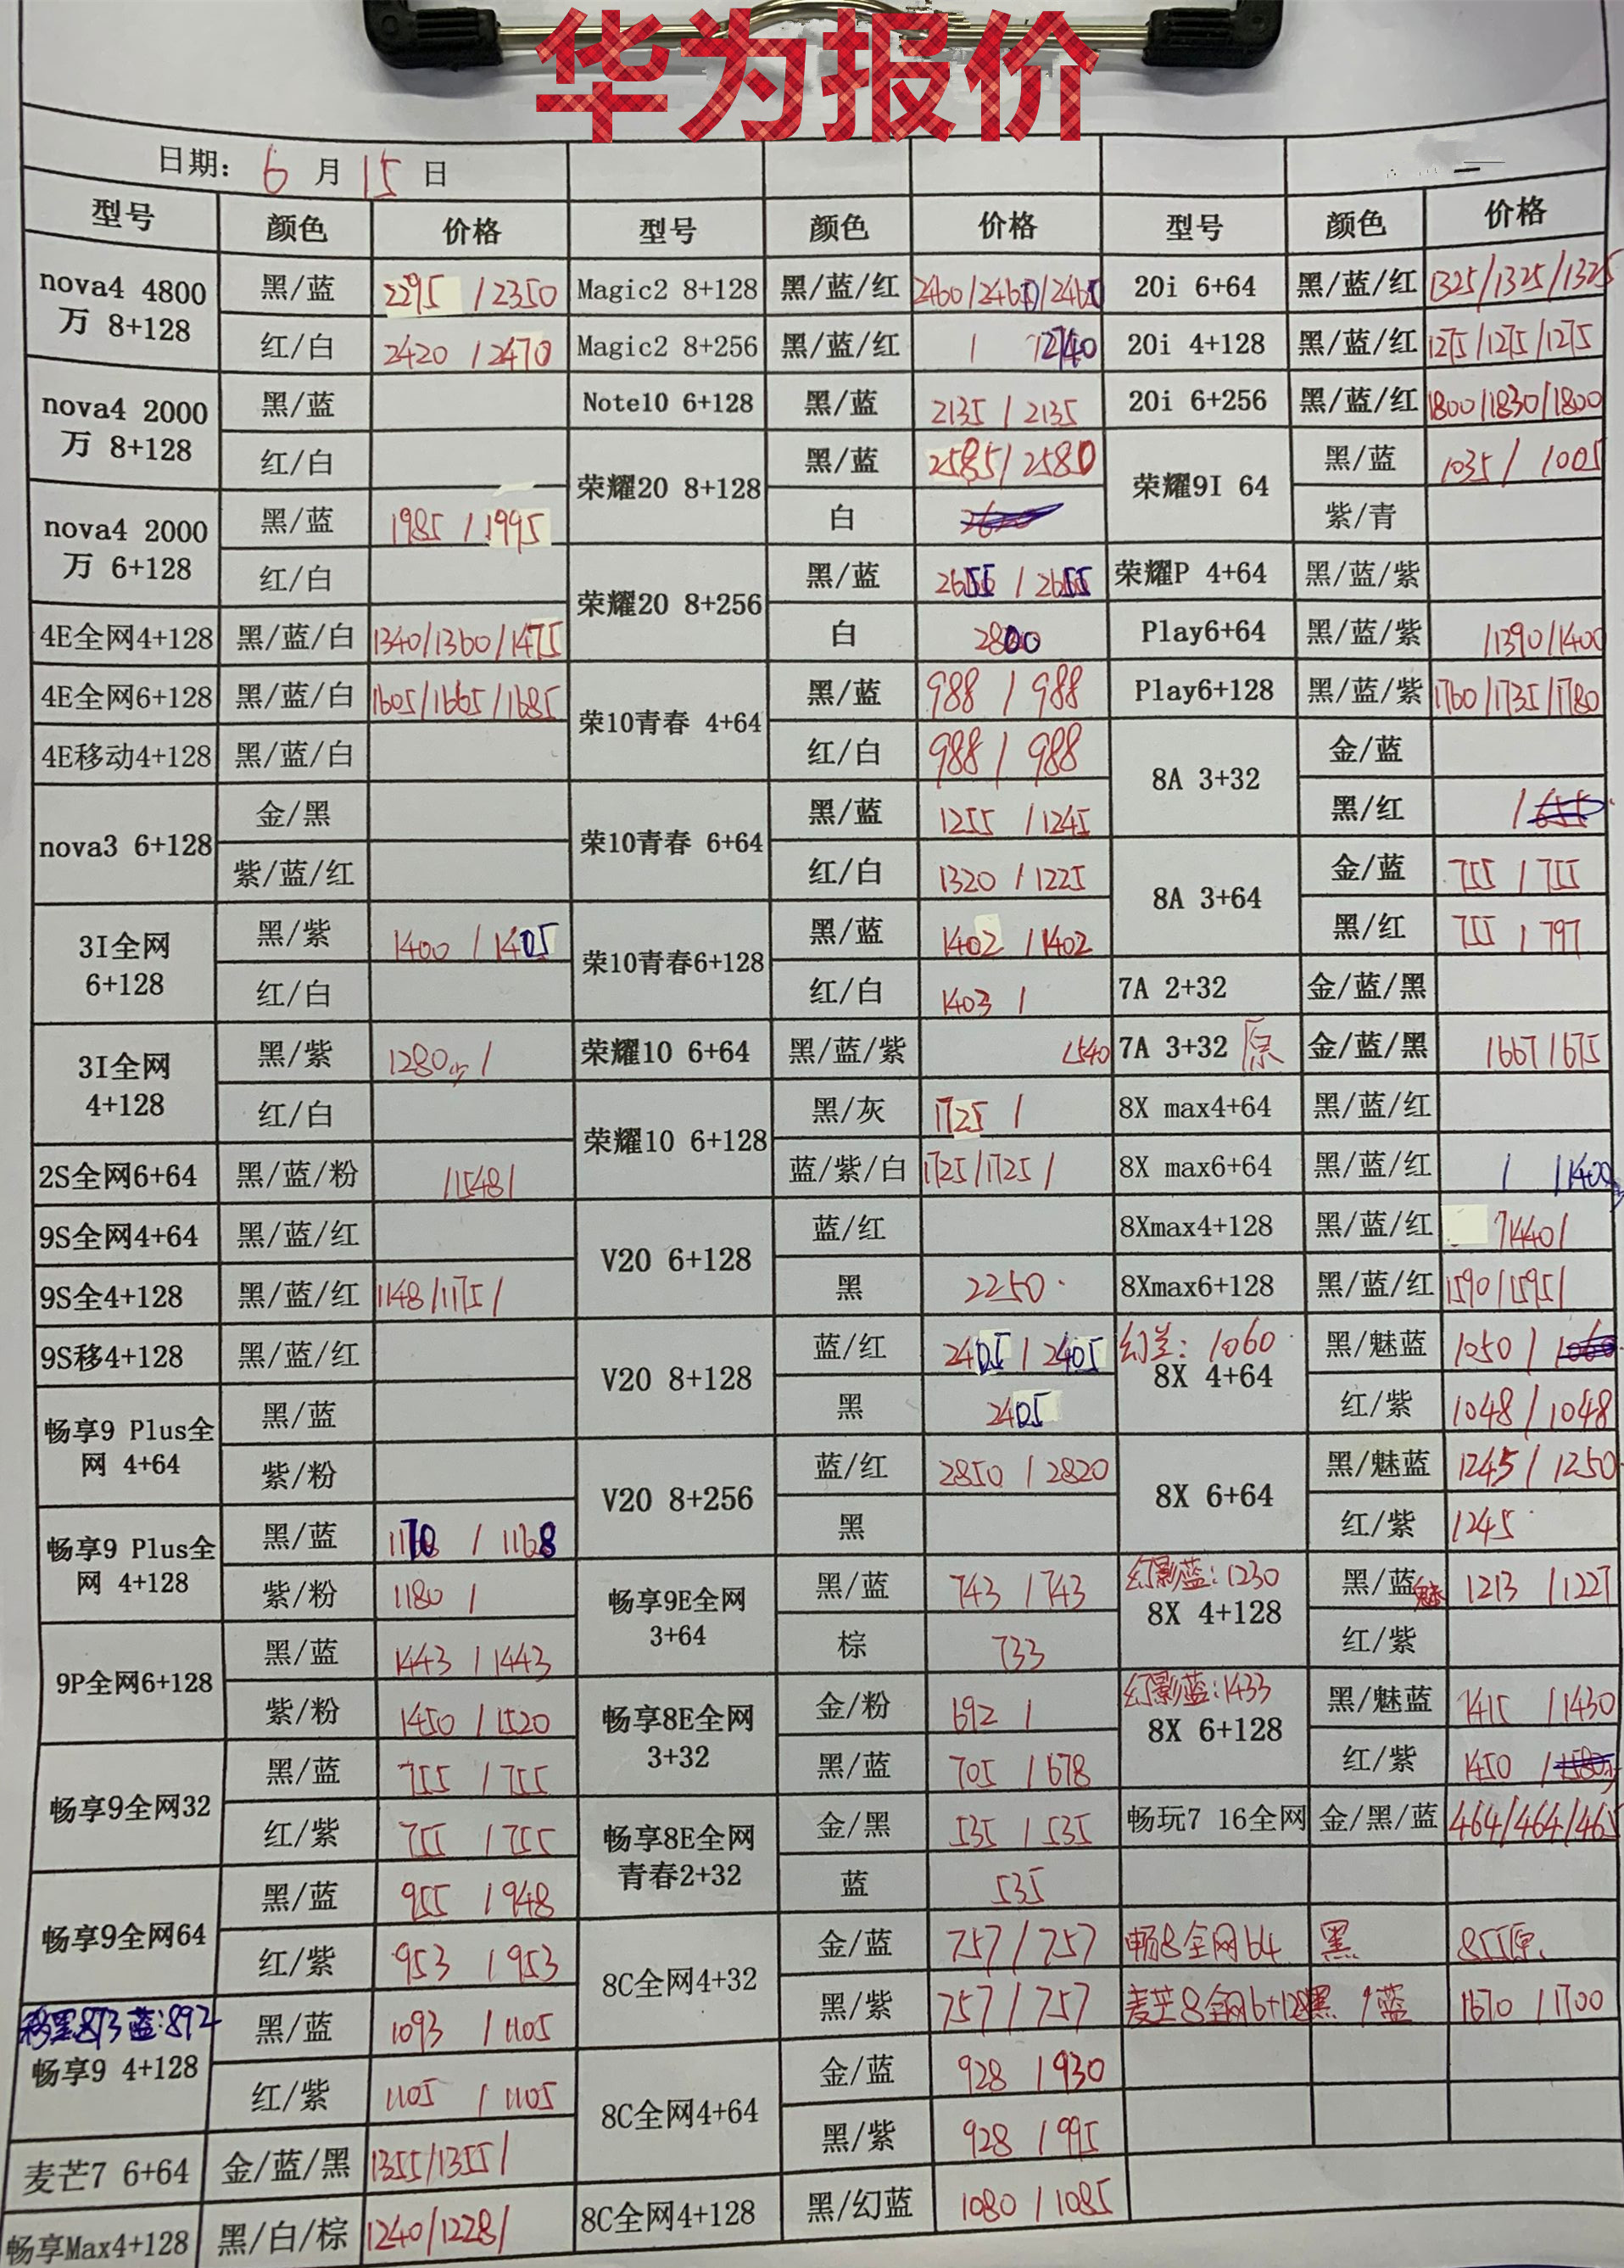 华为报价
日期: 6 月 15 日
型号 颜色 价格 型号 颜色 价格 型号 颜色 价格
nova4 4800万 8+128 黑/蓝 2295 / 2350 Magic2 8+128 黑/蓝/红 2460/2460/2460 20i 6+64 黑/蓝/红 1325/1325/1325
红/白 2420 / 2470 Magic2 8+256 黑/蓝/红 / /2740 20i 4+128 黑/蓝/红 1275/1275/1275
nova4 2000万 8+128 黑/蓝 Note10 6+128 黑/蓝 2135 / 2135 20i 6+256 黑/蓝/红 1800/1830/1800
红/白 荣耀20 8+128 黑/蓝 2585/ 2580 荣耀9I 64 黑/蓝 1035/ 1005
nova4 2000万 6+128 黑/蓝 1985 / 1995 白 紫/青
红/白 荣耀20 8+256 黑/蓝 2655 / 2655 荣耀P 4+64 黑/蓝/紫
4E全网4+128 黑/蓝/白 1340/1360/1475 白 2800 Play6+64 黑/蓝/紫 /1390/1400
4E全网6+128 黑/蓝/白 1605/1665/1685 荣10青春 4+64 黑/蓝 988 / 988 Play6+128 黑/蓝/紫 1760/1735/1780
4E移动4+128 黑/蓝/白 红/白 988 / 988 8A 3+32 金/蓝
nova3 6+128 金/黑 荣10青春 6+64 黑/蓝 1255 / 1245 黑/红 / 655
紫/蓝/红 红/白 1320 / 1225 8A 3+64 金/蓝 755 / 755
3I全网 6+128 黑/紫 1400 / 1405 荣10青春6+128 黑/蓝 1402 / 1402 黑/红 755 / 797
红/白 红/白 1403 / 7A 2+32 金/蓝/黑
3I全网 4+128 黑/紫 1280少 / 荣耀10 6+64 黑/蓝/紫 1540 7A 3+32 原 金/蓝/黑 /667/675
红/白 荣耀10 6+128 黑/灰 1725 / 8X max4+64 黑/蓝/红
2S全网6+64 黑/蓝/粉 /1548/ 蓝/紫/白 1725/1725/ 8X max6+64 黑/蓝/红 / /1400
9S全网4+64 黑/蓝/红 V20 6+128 蓝/红 8Xmax4+128 黑/蓝/红 /1440/
9S全4+128 黑/蓝/红 1148/1175/ 黑 2250 8Xmax6+128 黑/蓝/红 1590/1595/
9S移4+128 黑/蓝/红 V20 8+128 蓝/红 2405 / 2405 幻兰: 1060 8X 4+64 黑/魅蓝 1050 / 1060
畅享9 Plus全网 4+64 黑/蓝 黑 2405 红/紫 1048 / 1048
紫/粉 V20 8+256 蓝/红 2850 / 2820 8X 6+64 黑/魅蓝 1245/ 1250
畅享9 Plus全网 4+128 黑/蓝 1170 / 1168 黑 红/紫 1245
紫/粉 1180 / 畅享9E全网 3+64 黑/蓝 743 / 743 幻影蓝:1230 8X 4+128 黑/蓝魅 1213 / 1227
9P全网6+128 黑/蓝 1443 / 1443 棕 733 红/紫
紫/粉 1450 / 1520 畅享8E全网 3+32 金/粉 692 / 幻影蓝:1433 8X 6+128 黑/魅蓝 1415 / 1430
畅享9全网32 黑/蓝 755 / 755 黑/蓝 705 / 678 红/紫 1450 / 1580
红/紫 755 / 755 畅享8E全网 青春2+32 金/黑 535 / 535 畅玩7 16全网 金/黑/蓝 464/464/465
畅享9全网64 黑/蓝 955 / 948 蓝 535
红/紫 953 / 953 8C全网4+32 金/蓝 757 / 757 畅8全网64 黑 855原
移黑873 蓝:892
畅享9 4+128 黑/蓝 1093 / 1105 黑/紫 757 / 757 麦芒8全网6+128 黑 / 蓝 1670 / 1700
红/紫 1105 / 1105 8C全网4+64 金/蓝 928 / 930
麦芒7 6+64 金/蓝/黑 1355/1355/ 黑/紫 928 / 995
畅享Max4+128 黑/白/棕 1240/1228/ 8C全网4+128 黑/幻蓝 1080 / 1085